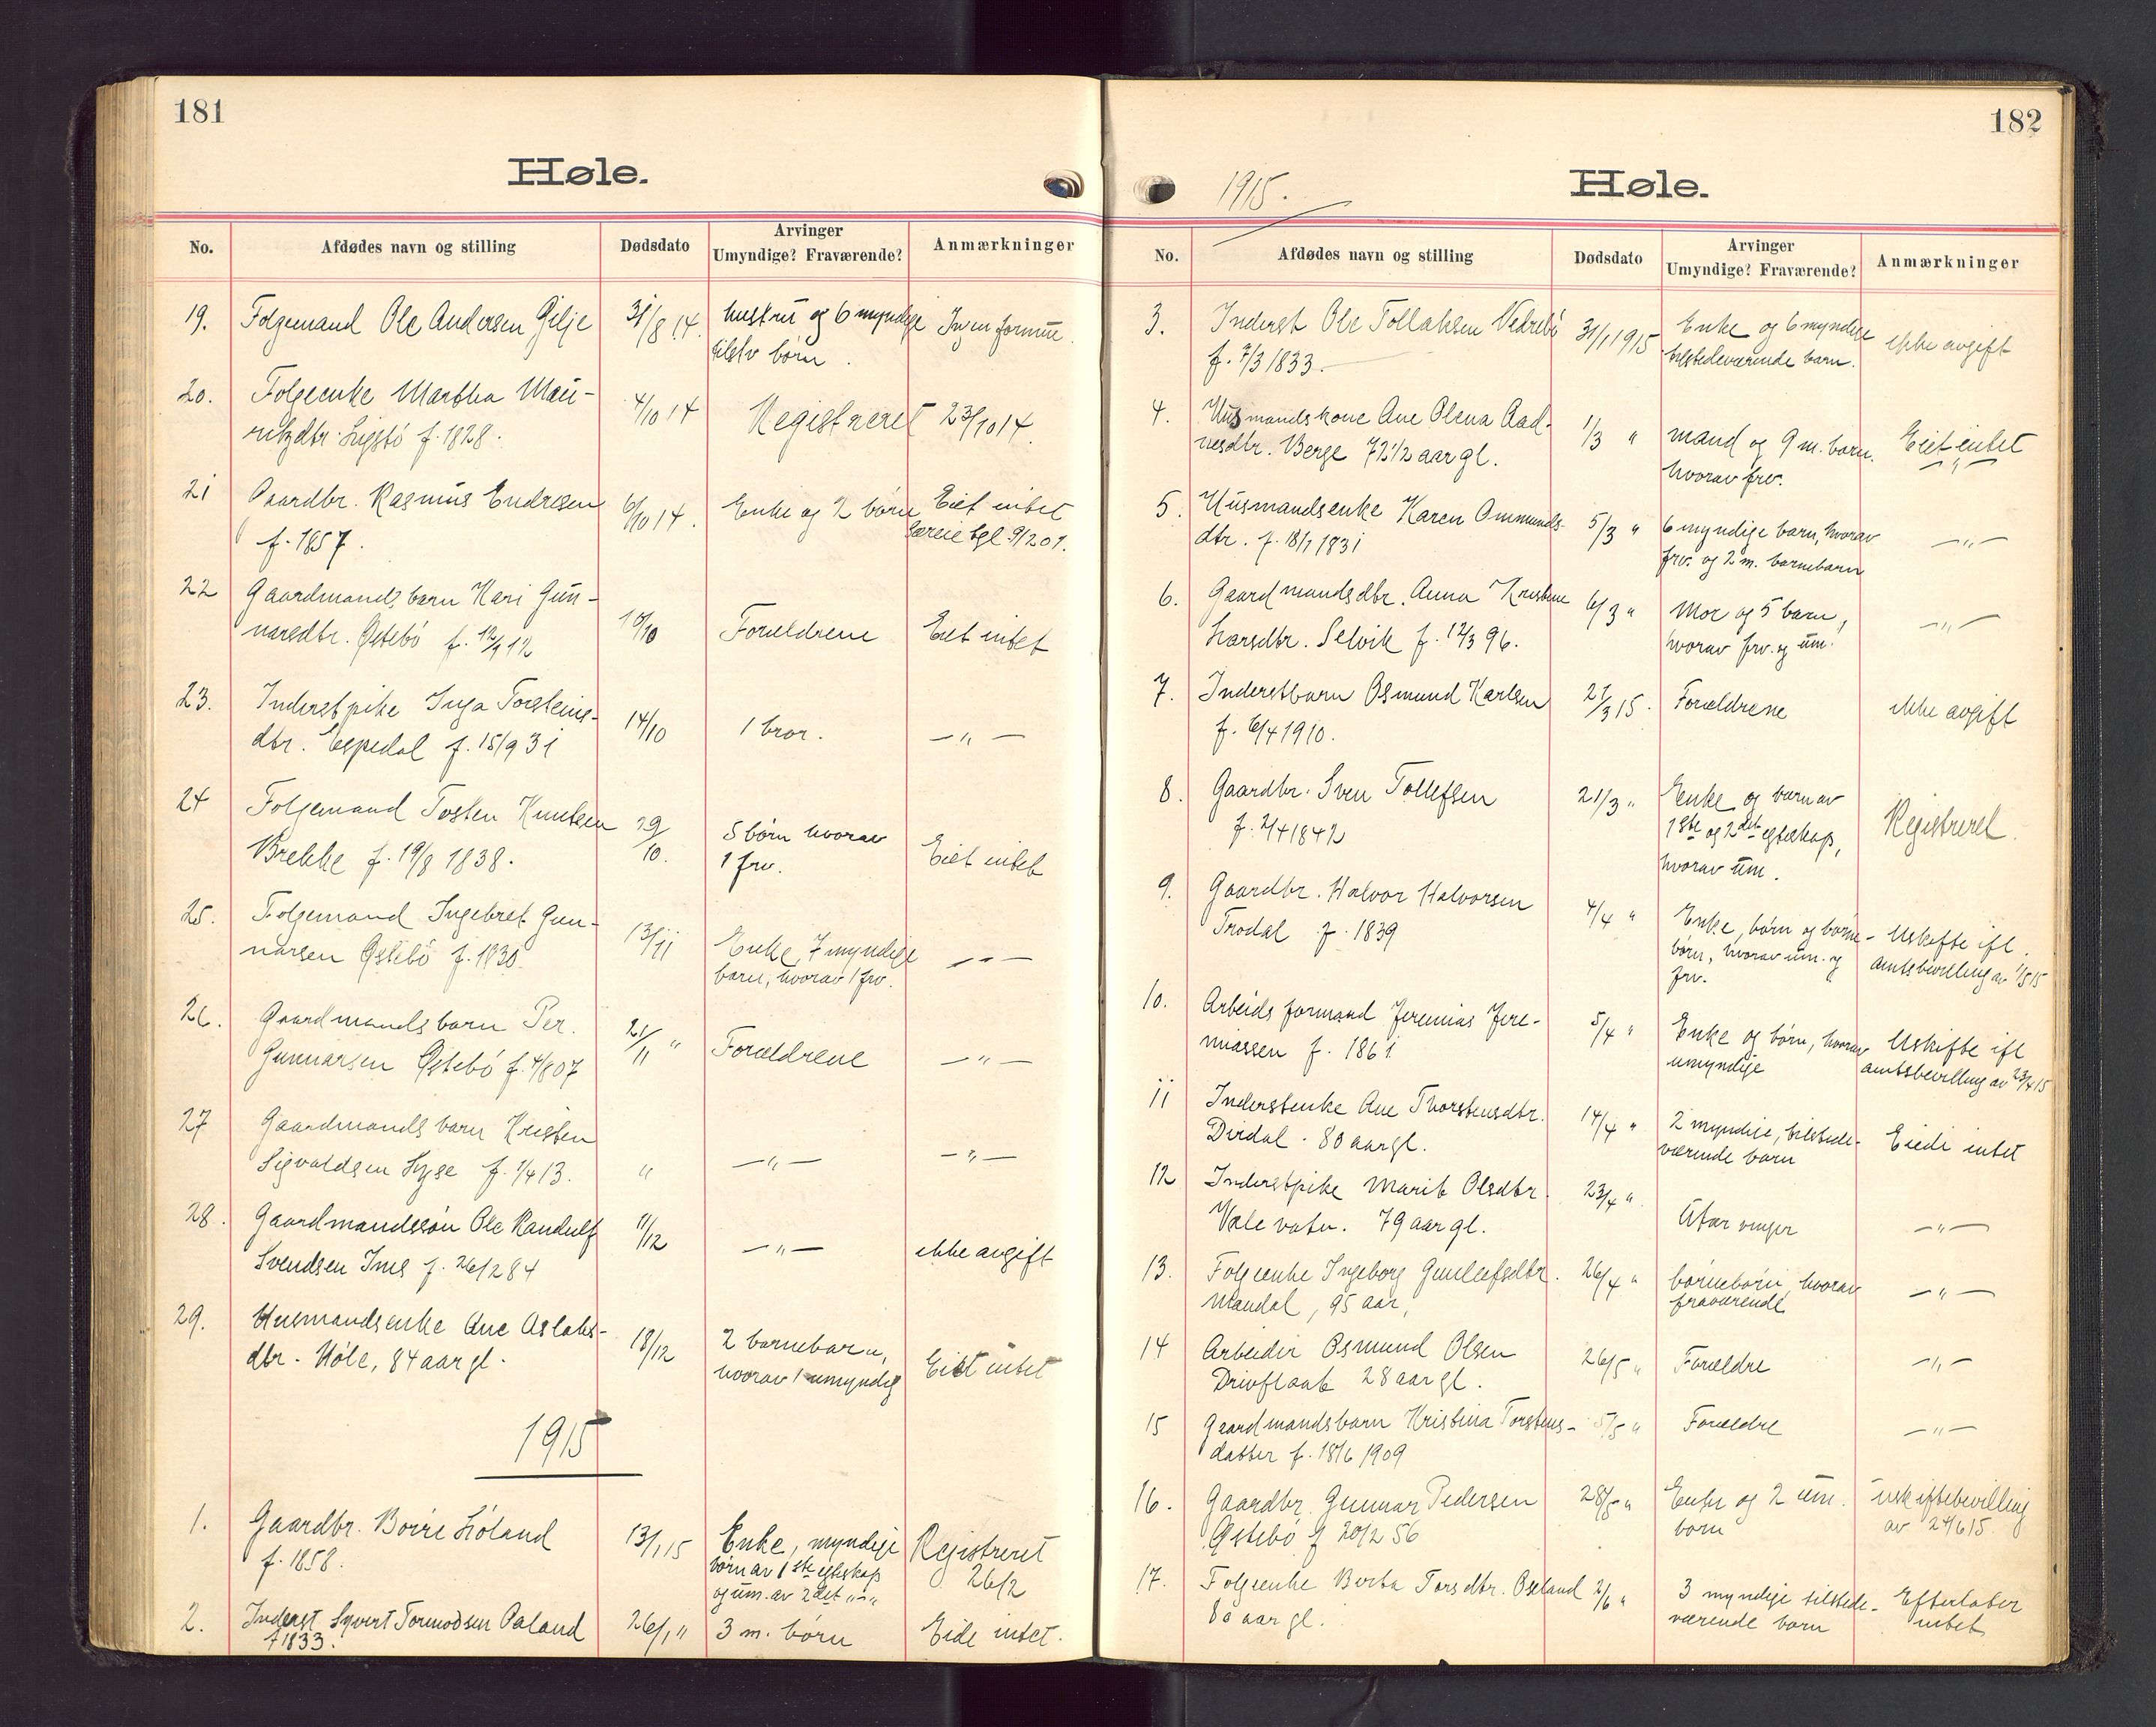 181
Høle.
No. Afdødes navn og stilling Dødsdato Arvinger Umyndige? Fraværende? Anmærkninger
19. Folgemand Ole Andersen Gilje 31/8 14. hustru og 6 myndige Ingen formue.
tilstv børn.
20. Folgeenke Martha Mau- 4/10 14 Registreret 23/10 14.
ritzdtr. f. 1828.
21 Gaardbr. Rasmus Endresen 6/10 14. Enke og 2 børn Eiet intet
f. 1857. Særeie tgl 9/2 01.
22 Gaardmands barn Kari Gun- Forældrene Eiet intet
narsdtr. Østebö
23. Inderstpike Inga Torsteins- 14/10 1 bror. —"—
dtr. Espedal f. 15/9 31
24 Folgemand Tosten Knutsen 29/10. 5 børn hvorav Eiet intet
Brekke f. 19/8 1838. 1 frv.
25. Folgemand Ingebret Gun- 13/11 Enke, 7 myndige —"—
narsen Østebö f. 1830 barn, hvorav 1 frv.
26. Gaardmandsbarn Per. 21/11 " Forældrene —"—
Gunnarsen Østebö f. 4/8 07
27 Gaardmands barn Kristen " —"— —"—
Sigvaldsen Lyse f. 1/4 13.
28. Gaardmandssön Ole Randulf 11/12 —"— ikke avgift
Svendsen Ims f. 26/2 84
29. Husmandsenke Ane Aslaks- 18/12 2 barnebarn, Eiet intet
dtr. Höle, 84 aar gl. hvorav 1 umyndig
1915
1. Gaardbr. Börre Löland 13/1 15 Enke, myndige Registreret
f. 1858. børn av 1ste egteskap 26/2
og um. av 2det "—"
2. Inderst Syvert Tormodsen Paland 26/1 " 3 m. børn Eide intet.
f 1833.
182
1915.
Høle.
No. Afdødes navn og stilling Dødsdato Arvinger Umyndige? Fraværende? Anmærkninger
3. Inderst Ole Tollaksen Vedrebö 31/1 1915 Enke og 6 myndige ikke avgift
f. 7/3 1833. tilstedeværende barn.
4. Husmandskone Ane Olena Aad- 1/3 " mand og 9 m. barn. Eiet intet
nesdtr. Berge 72 1/2 aar gl. hvorav frv. —"—
5. Husmandsenke Karen Ommunds- 5/3 " 6 myndige barn, hvorav —"—
dtr. f. 18/1 1831 frv. og 2 m. barnebarn
6. Gaardmandsdtr. Anna Kristine 6/3 " Mor og 5 barn, —"—
Larsdtr. Selvik f. 12/3 96. hvorav frv. og um.
7. Inderstbarn Osmund Karlsen 21/3 15. Forældrene ikke avgift
f. 6/4 1910.
8. Gaardbr. Sven Tollefsen 21/3 " Enke og barn av Registreret.
f. 2/4 1842 1ste og 2det egteskap,
hvorav um.
9. Gaardbr. Halvor Halvorsen 4/4 " Enke, børn og børne- Uskifte ifl.
Frodal f. 1839 børn, hvorav um. og amtsbevilling av 1/5 15
frv.
10. Arbeidsformand Jeremias Jere- 5/4 " Enke og børn, hvorav Uskifte ifl
miassen f. 1861 umyndige amtsbevilling av 23/4 15
11 Inderstenke Ane Thorstensdtr. 14/4 " 2 myndige, tilstede- Eiede intet
Dirdal. 80 aar gl. værende barn
12 Inderstpike Marit Olsdtr. 23/4 " Utarvinger —"—
Vale vatn. 79 aar gl.
13. Folgeenke Ingeborg Gunleifsdtr. 26/4 " børnebörn, hvorav —"—
Maudal, 95 aar, fraværende
14 Arbeider Osmund Olsen 26/5 " Forældre —"—
Drivflaat 28 aar gl.
15 Gaardmandsbarn Kristina Torstens- 5/5 " Forældre —"—
datter f. 18/6 1909
16. Gaardbr. Gunnar Pedersen 28/5 " Enke og 2 um. uskiftebevilling
Østebö f 20/2 56 barn av 24/6 15.
17. Folgeenke Berta Tarsdtr. Oseland 2/6 " 3 myndige tilstede- Efterlater
80 aar gl. værende barn intet